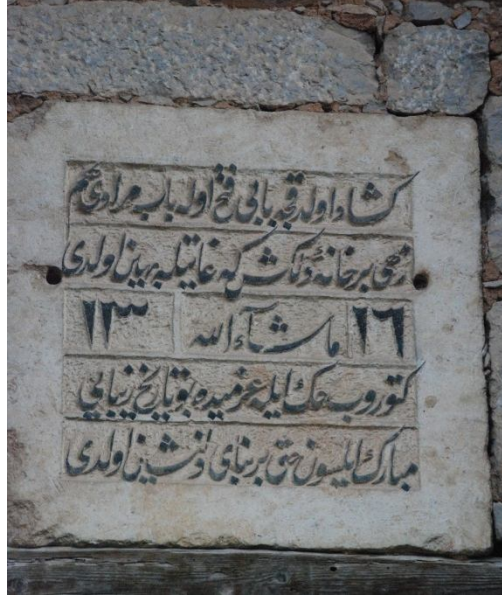 كشاد اولدقجه بابى فتح اوله باب مرادى هم
زهى بر خانهٔ دلكش كه غايتله برين اولدى
١٦ ماشآء الله ١٣
كتوروب حك ايله عزميده بو تاريخ زيبايى
مبارك ايلسون حق بر بناى دلنشين اولدى